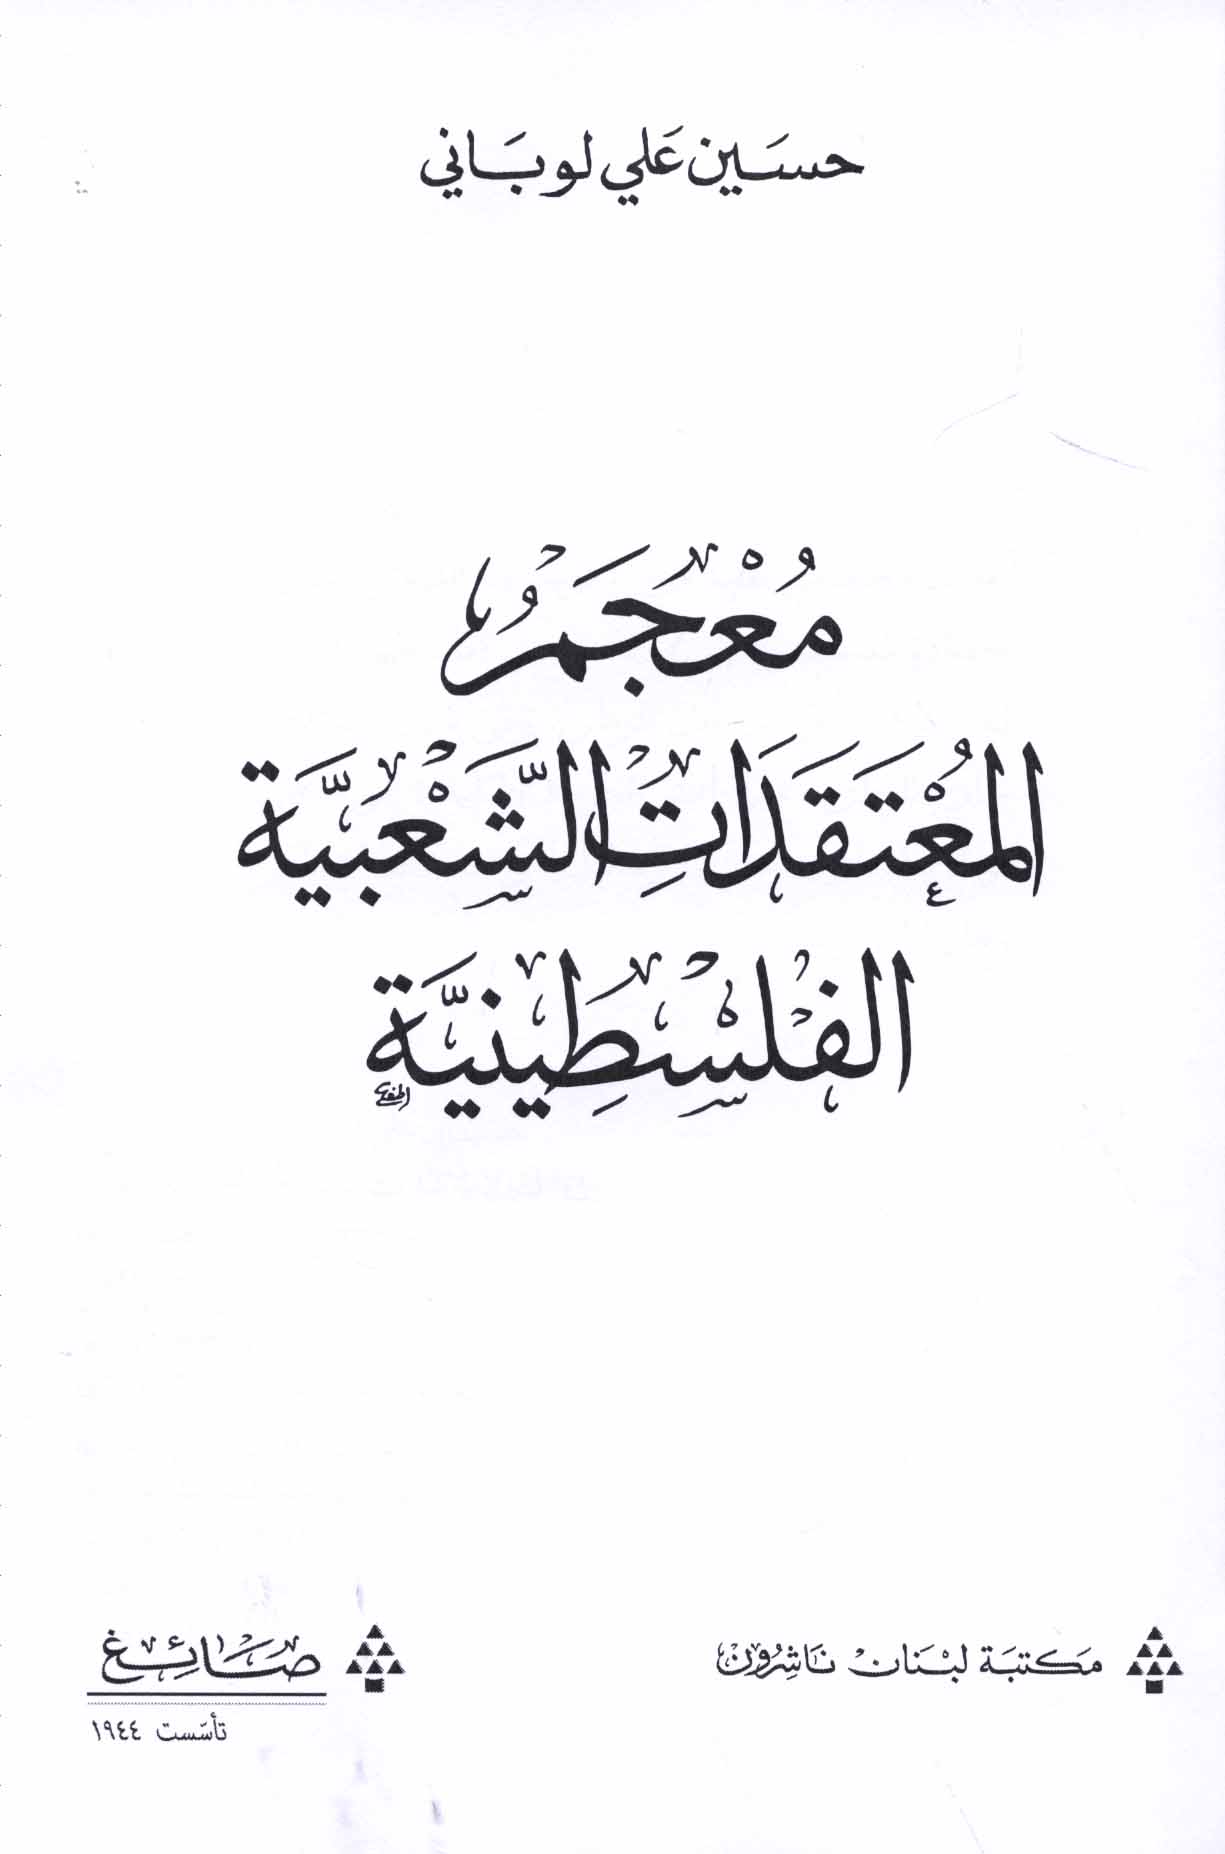 حسين علي لوباني
مُعْجَمُ
المُعْتَقَدَاتِ الشَّعْبِيَّة
الفِلَسْطِينِيَّة
مكتبة لبنان ناشرون
صائغ
تأسّست ١٩٤٤